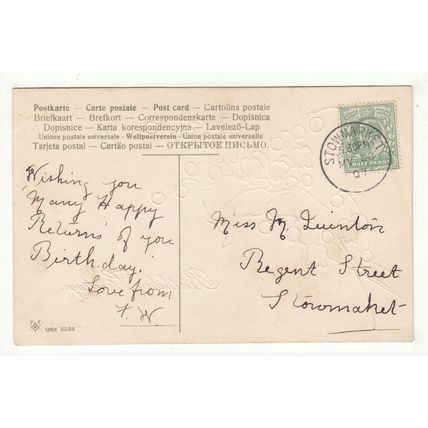 Postkarte — Carte postale — Post card — Cartolina postale
Briefkaart — Brefkort — Correspondenzkarte — Dopisnica
Dopisnice — Karta korespondencyjna — Levelező-Lap
Unione postale universale - Weltpostverein - Union postale universelle
Tarjeta postal — Cartão postal — ОТКРЫТОЕ ПИСЬМО.
STOWMARKET
07
HALF PENNY
Wishing you
Many Happy
Returns of you
Birthday.
Love from
F. W
Miss M. Quinton
Regent Street
Stowmaket
SERIE 6099